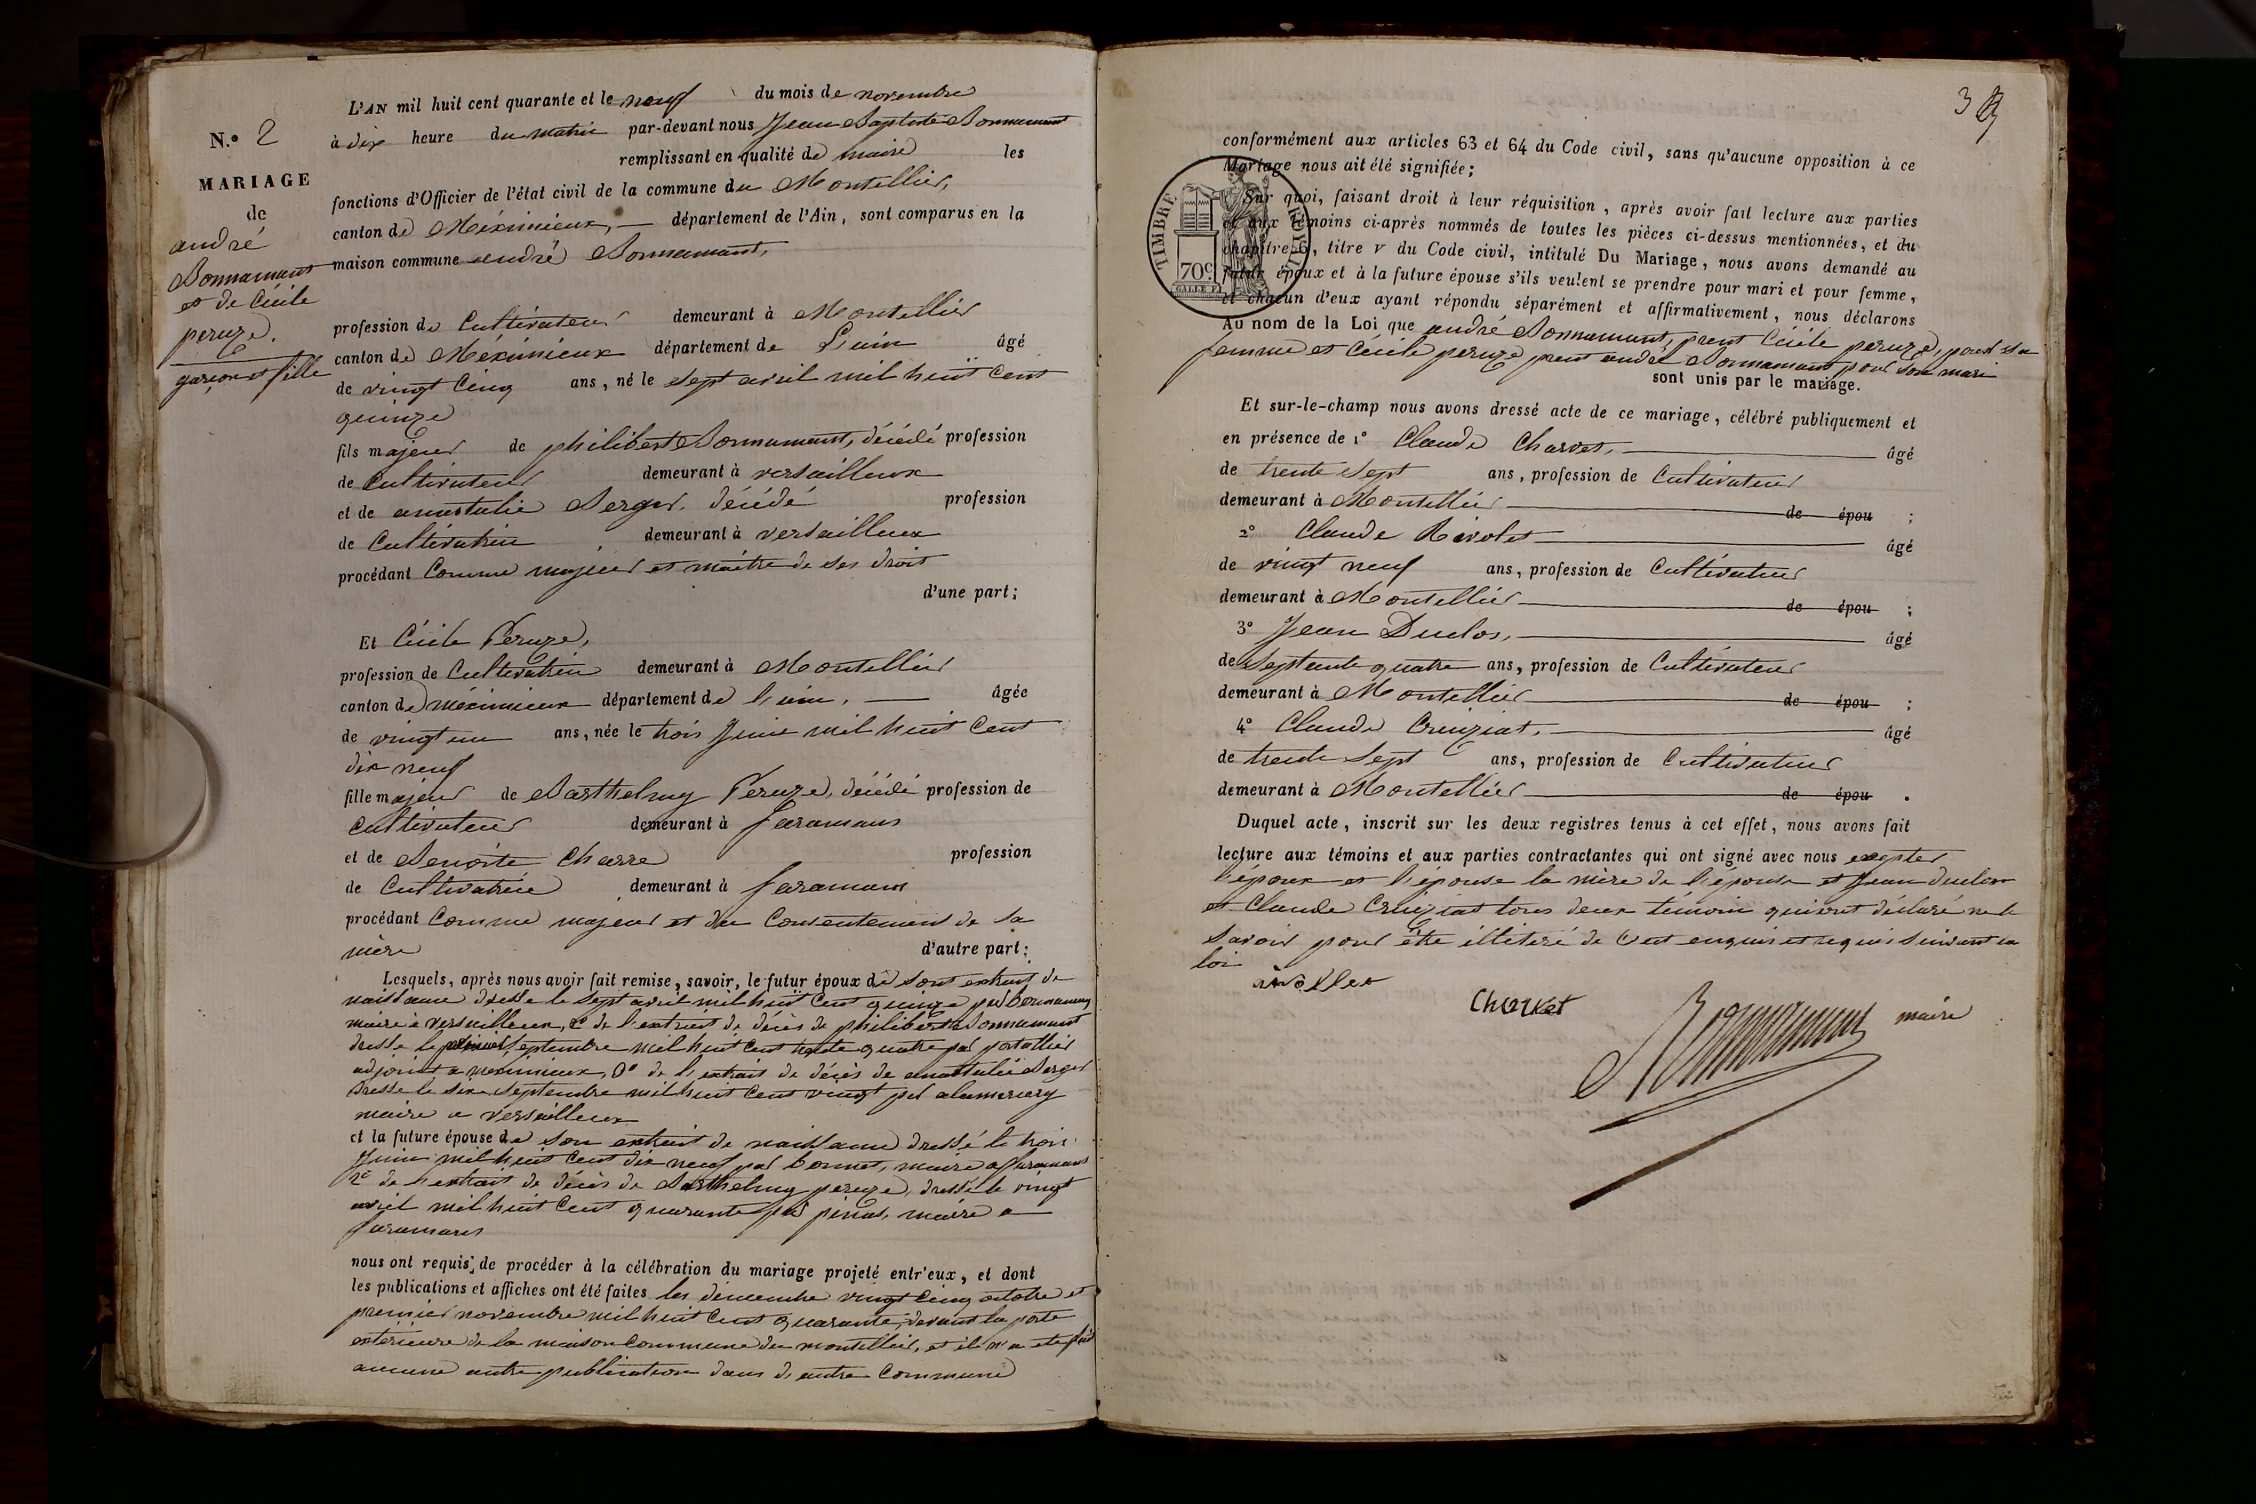 L'AN mil huit cent quarante et le neuf du mois de novembre
N.º 2
à dix heure du matin par-devant nous Jean Baptiste Bonnamant
remplissant en qualité de maire les
MARIAGE
de
andré
Bonnamant
et de Cécile
peruze.
garçon et fille
fonctions d'Officier de l'état civil de la commune du Montellier,
canton de Méximieux, département de l'Ain, sont comparus en la
maison commune andré Bonnamant,
profession de Cultivateur demeurant à Montellier
canton de Méximieux département de L'ain âgé
de vingt Cinq ans, né le sept avril mil huit Cent
quinze
fils majeur de philibert Bonnamant, décédé profession
de Cultivateur demeurant à versailleux
et de anastasie Berger, décédé profession
de Cultivatrice demeurant à versailleux
procédant Comme majeur et maitre de ses droit
d'une part;
Et Cécile Peruze,
profession de Cultivatrice demeurant à Montellier
canton de méximieux département de l'ain, âgée
de vingt un ans, née le trois Juin mil huit Cent
dix neuf
fille majeur de Barthelmy Peruze, décédé profession de
Cultivateur demeurant à faramans
et de Benoite Charre profession
de Cultivatrice demeurant à faramans
procédant Comme majeur et du Consentement de sa
mère d'autre part;
Lesquels, après nous avoir fait remise, savoir, le futur époux de sont extrait de
naissance dressé le sept avril mil huit Cent quinze par
maire à versailleux, 2º de l'extrait de décès de philibert Bonnamant
dressé le premier septembre mil huit Cent trente quatre par portallier
adjoint a meximieux, 3º de l'extrait de décès de anastasie Berger
dressé le six septembre mil huit Cent vingt par
maire a versailleux
et la future épouse de son extrait de naissance dressé le trois
Juin mil huit Cent dix neuf par bonnet, maire a faramans
2º de l'extrait de décès de Barthelmy peruze, dressé le vingt
avril mil huit Cent quarante par maire a
faramans
nous ont requis de procéder à la célébration du mariage projeté entr'eux, et dont
les publications et affiches ont été faites les dimenche vingt Cinq octobre et
premier novembre mil huit Cent quarante, devant la porte
extérieure de la maison Commune du montellier, et il n'a eté fait
aucune autre publication dans d'autre Commune
3
conformément aux articles 63 et 64 du Code civil, sans qu'aucune opposition à ce
Mariage nous ait été signifiée;
TIMBRE ROYAL
70c
Sur quoi, faisant droit à leur réquisition, après avoir fait lecture aux parties
et aux témoins ci-après nommés de toutes les pièces ci-dessus mentionnées, et du
chapitre 6, titre V du Code civil, intitulé Du Mariage, nous avons demandé au
futur époux et à la future épouse s'ils veulent se prendre pour mari et pour femme,
et chacun d'eux ayant répondu séparément et affirmativement, nous déclarons
Au nom de la Loi que andré Bonnamant, prent Cécile peruze, pour sa
femme et Cécile peruze prent andré Bonnamant pour son mari
sont unis par le mariage.
Et sur-le-champ nous avons dressé acte de ce mariage, célébré publiquement et
en présence de 1º Claude Charvet, âgé
de trente sept ans, profession de Cultivateur
demeurant à Montellier de épou ;
2º Claude Rivolet âgé
de vingt neuf ans, profession de Cultivateur
demeurant à Montellier de épou ;
3º Jean Duclos, âgé
de septente quatre ans, profession de Cultivateur
demeurant à Montellier de épou ;
4º Claude Cruiziat, âgé
de trente sept ans, profession de Cultivateur
demeurant à Montellier de épou .
Duquel acte, inscrit sur les deux registres tenus à cet effet, nous avons fait
lecture aux témoins et aux parties contractantes qui ont signé avec nous excepter
l'époux et l'épouse la mère de l'épouse et Jean duclos
et Claude Cruiziat tous deux témoin qui ont déclaré ne le
savoir pour être illiteré de Cest enquis et requis suivant la
loi
Charvet
Bonnamant maire